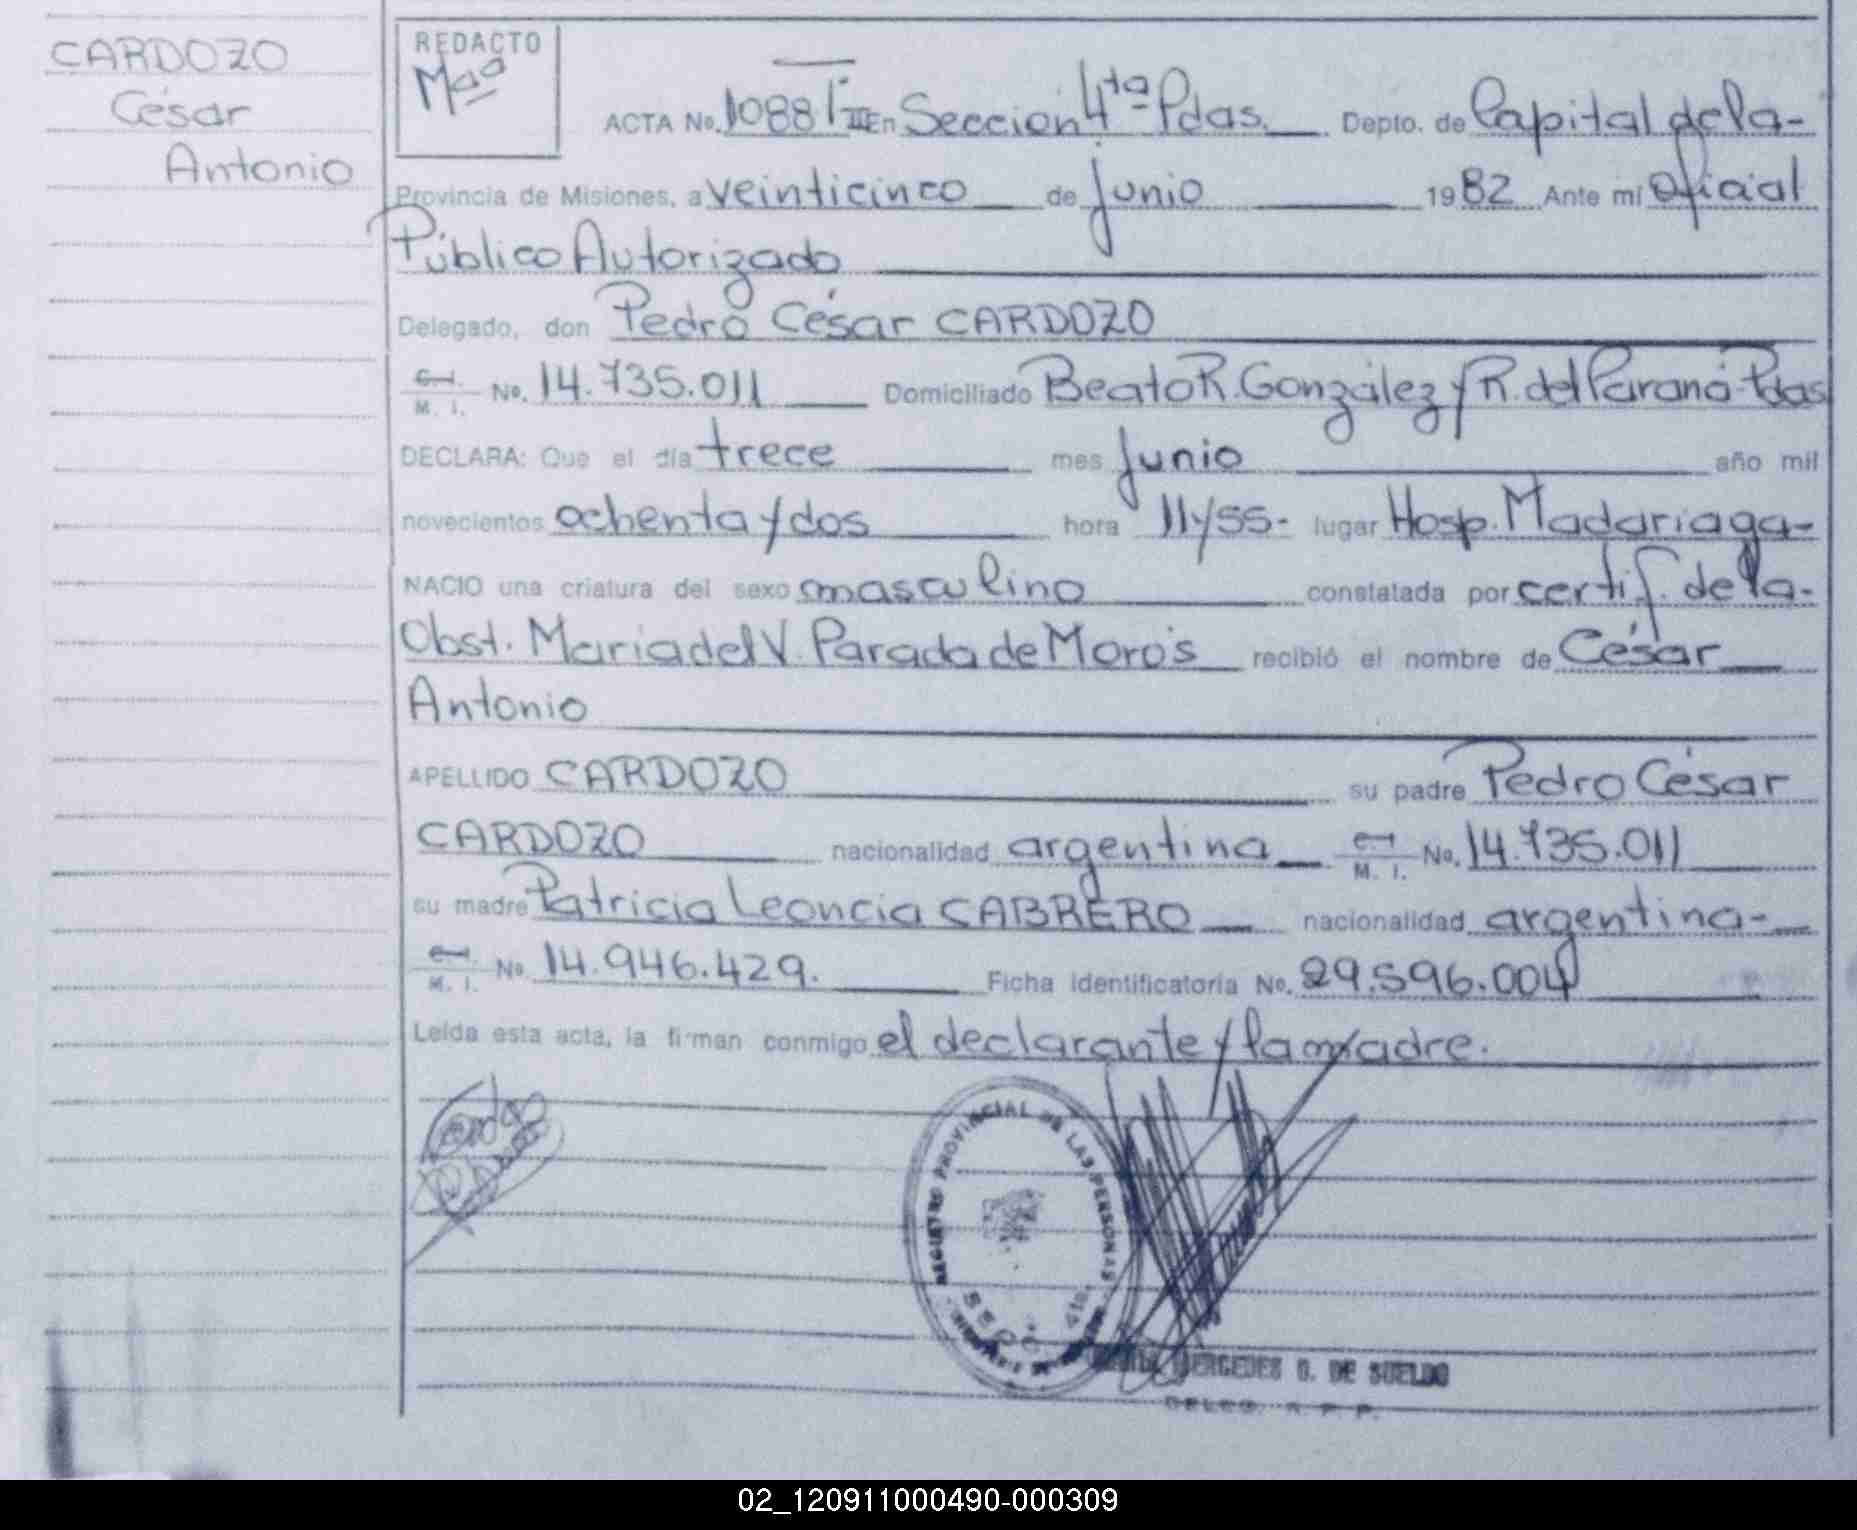 CARDOZO
César
Antonio
REDACTO
Mª
ACTA No. 1088 T III En Sección 4ta Pdas. Depto. de Capital de la-
Provincia de Misiones, a veinticinco de junio 1982 Ante mí Oficial
Público Autorizado
Delegado, don Pedro César CARDOZO
C.I. M. I. No. 14.735.011 Domiciliado Beato R. González y R. del Paraná-Pdas
DECLARA: Que el día trece mes junio año mil
novecientos ochenta y dos hora 11y55- lugar Hosp. Madariaga-
NACIO una criatura del sexo masculino constatada por certif. de la-
Obst. María del V. Parada de Moro's recibió el nombre de César
Antonio
APELLIDO CARDOZO su padre Pedro César
CARDOZO nacionalidad argentina M. I. No. 14.735.011
su madre Patricia Leoncia CABRERO nacionalidad argentina-
M. I. No 14.946.429. Ficha identificatoria No. 29.596.004
Leída esta acta, la firman conmigo el declarante y la madre.
REGISTRO PROVINCIAL DE LAS PERSONAS
SECC. 4ta.
MERCEDES G. DE SUELDO
DELEG. R. P. P.
02_120911000490-000309